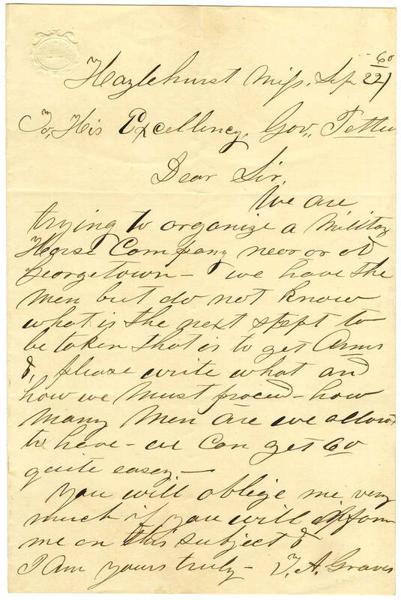 Hazlehurst Miss. Sep 22/60
To, His Excellency, Gov, Pettus
Dear Sir,
We are
trying to organize a Military
Horse Company near or at
Georgetown - we have the
men but do not know
what is the next stept to
be taken that is to get Arms
&, please write what and
how we must proced - how
many men are we allowd
to have - we can get 60
quite easey -
you will oblige me very
much if you will inform
me on this subject &
I am yours truly - T. A. Graves